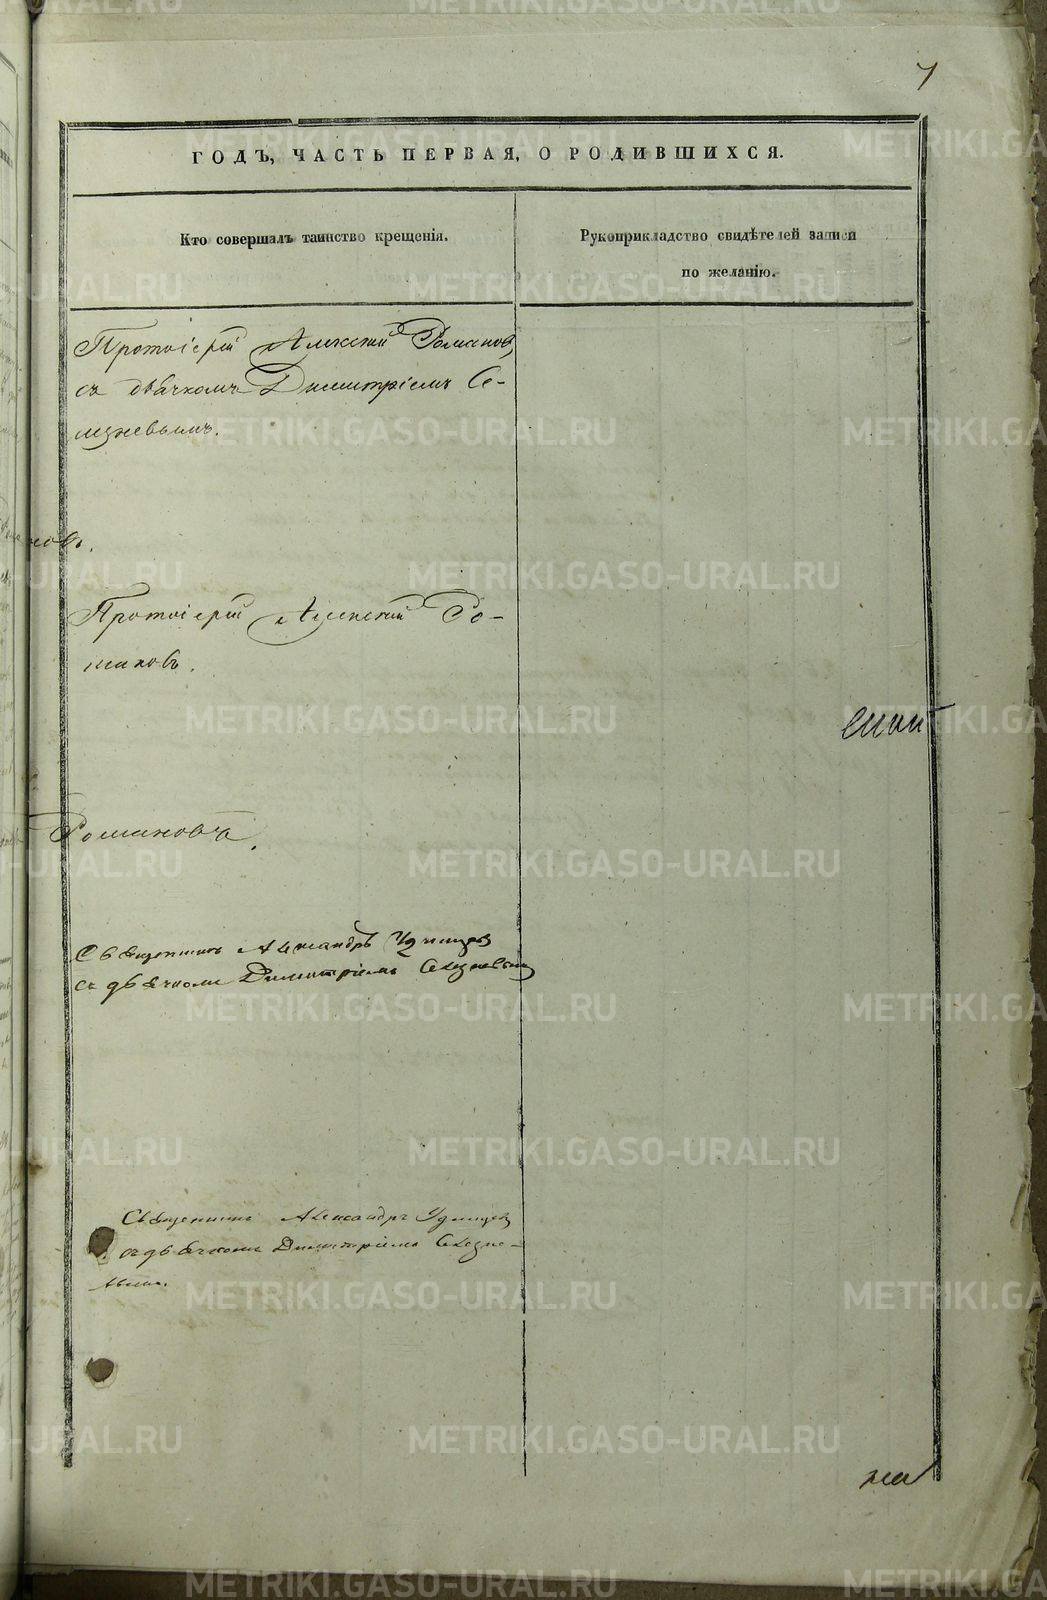 7
ГОДЪ, ЧАСТЬ ПЕРВАЯ, О РОДИВШИХСЯ.
Кто совершалъ таинство крещенія.
Рукоприкладство свидѣтелей записи
по желанію.
Протоіерей Алексий Романовъ
съ дьячкомъ Димитріемъ Се-
лезневымъ.
новъ.
Протоіерей Алексий Ро-
мановъ.
Романовъ.
Священникъ Александръ Удинцевъ
съ дьячкомъ Димитріемъ Селезневымъ
Священникъ Александръ Удинцевъ
съ дьячкомъ Димитріемъ Селезне-
вымъ.
METRIKI.GASO-URAL.RU